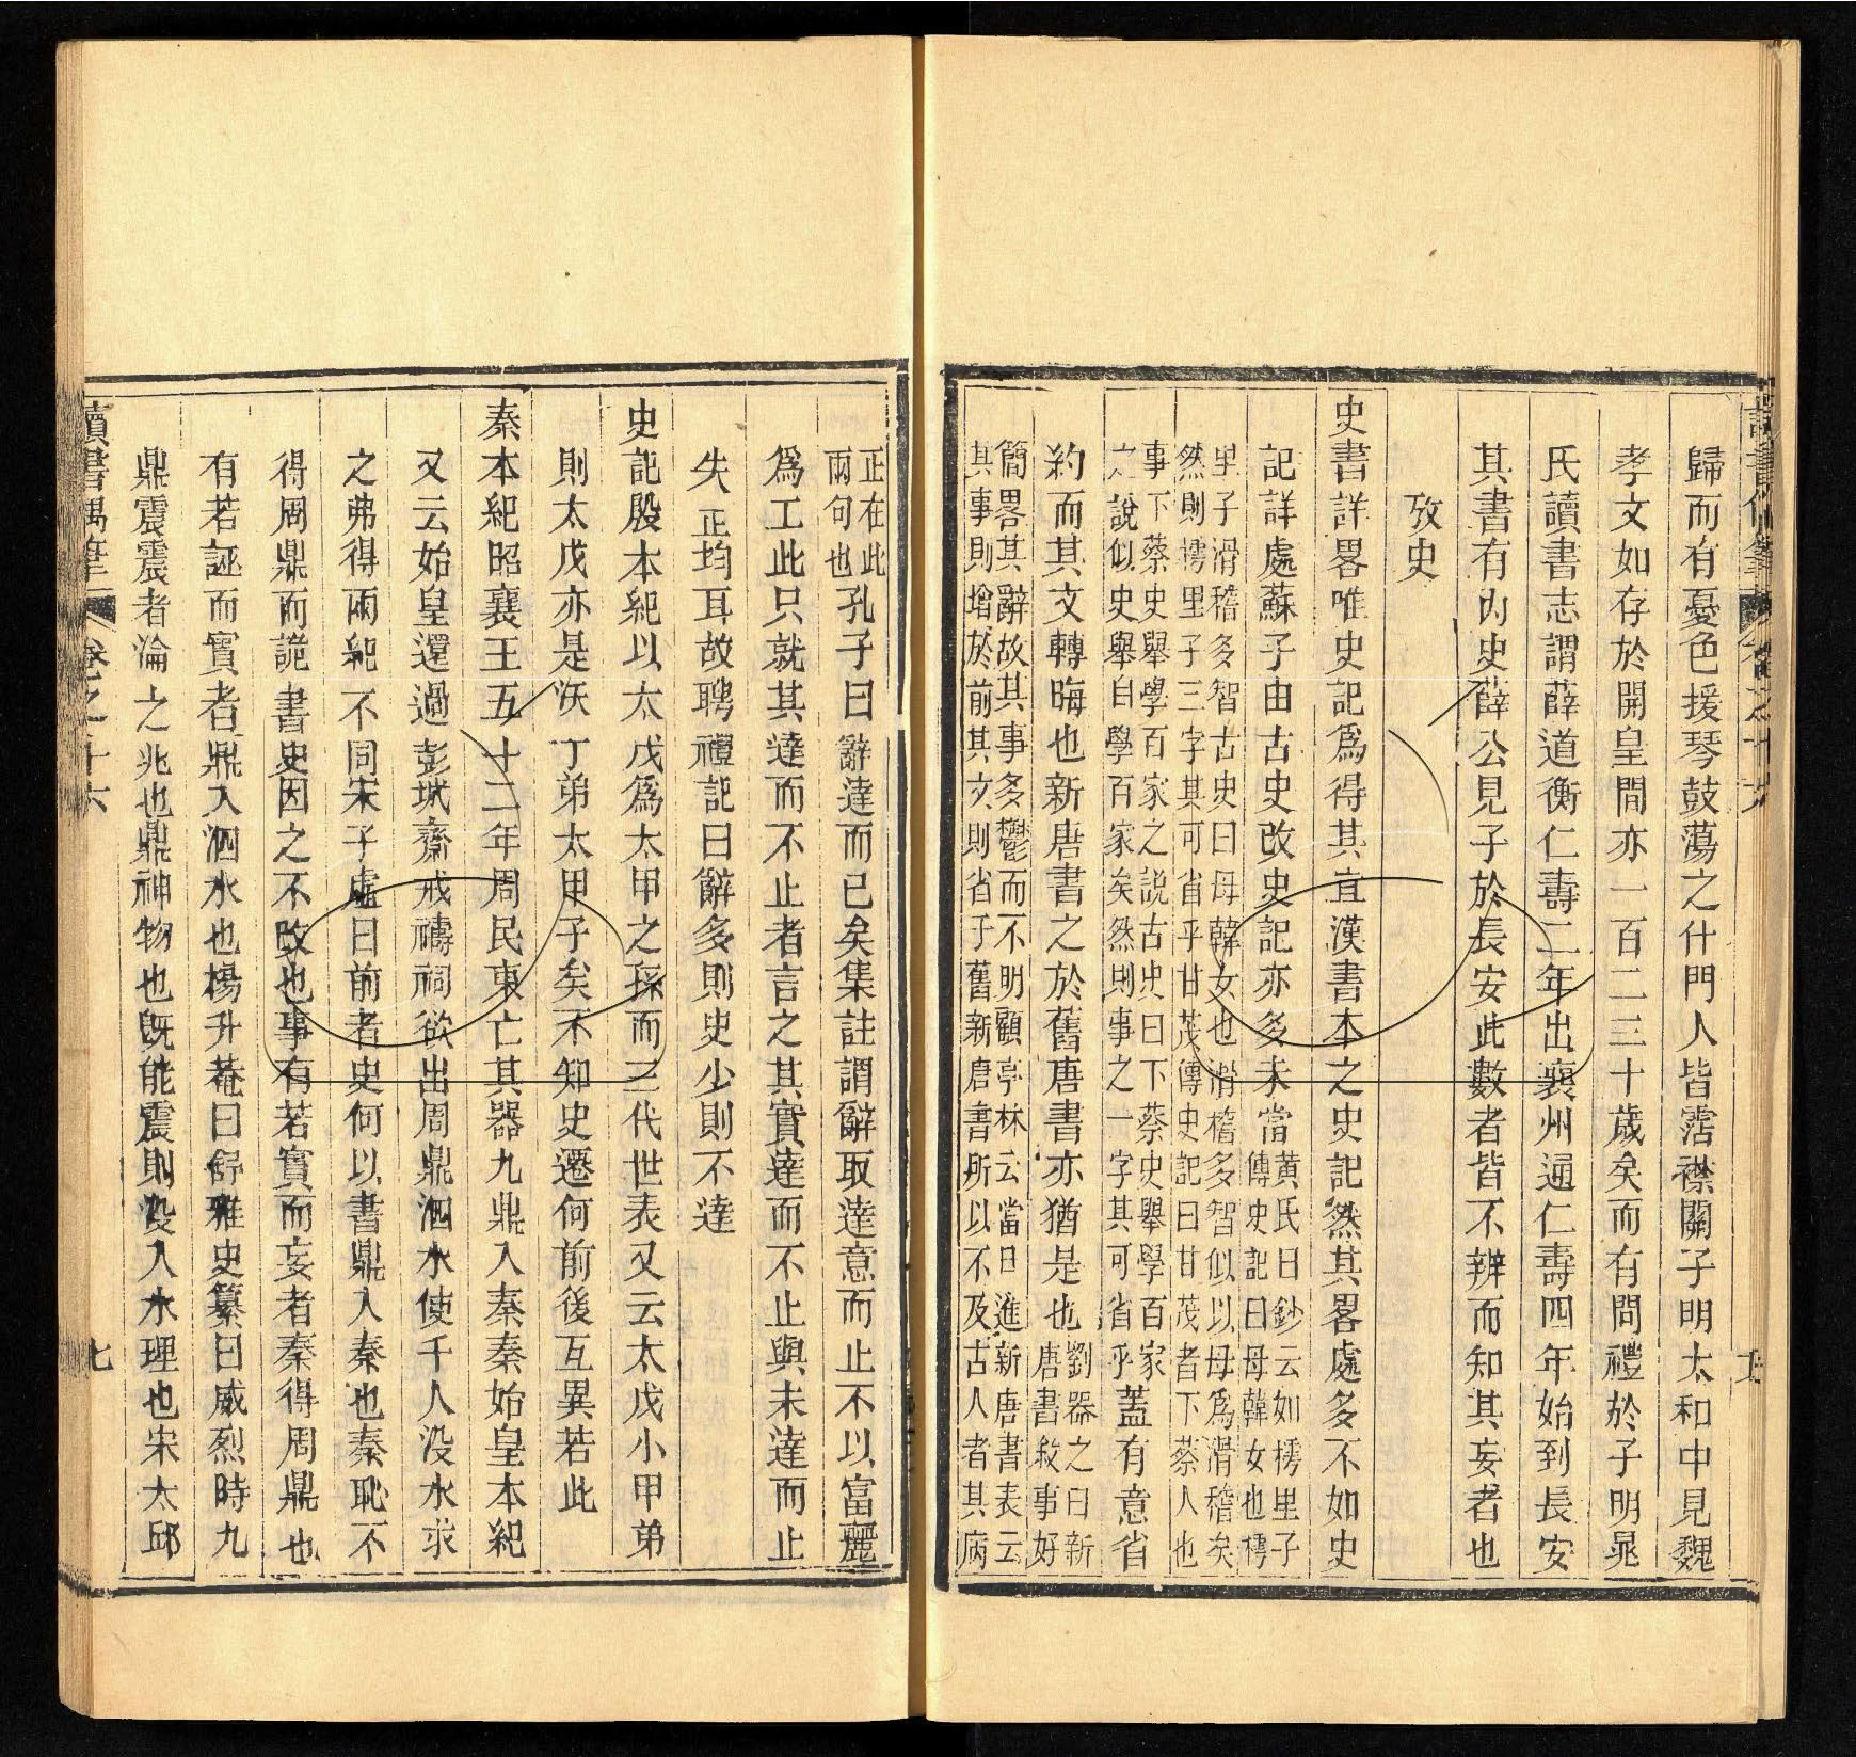 歸而有憂色援琴鼓蕩之什門人皆霑襟關子明太和中見魏
孝文如存於開皇間亦一百二三十歲矣而有問禮於子明晁
氏讀書志謂薛道衡仁壽二年出襄州通仁壽四年始到長安
其書有內史薛公見子於長安此數者皆不辨而知其妄者也
攷史
史書詳畧唯史記爲得其宜漢書本之史記然其畧處多不如史
記詳處蘇子由古史改史記亦多未當黃氏日鈔云如樗里子
傳史記曰母韓女也樗
里子滑稽多智古史曰母韓女也滑稽多智似以母爲滑稽矣
然則樗里子三字其可省乎甘茂傳史記曰甘茂者下蔡人也
事下蔡史舉學百家之說古史曰下蔡史舉學百家
之說似史舉自學百家矣然則事之一字其可省乎蓋有意省
約而其文轉晦也新唐書之於舊唐書亦猶是也劉器之曰新
唐書敘事好
簡畧其辭故其事多鬱而不明顧亭林云當日進新唐書表云
其事則增於前其文則省于舊新唐書所以不及古人者其病
正在此
兩句也孔子曰辭達而已矣集註謂辭取達意而止不以富麗
爲工此只就其達而不止者言之其實達而不止與未達而止
失正均耳故聘禮記曰辭多則史少則不達
史記殷本紀以太戊爲太甲之孫而三代世表又云太戊小甲弟
則太戊亦是沃丁弟太甲子矣不知史遷何前後互異若此
秦本紀昭襄王五十二年周民東亡其器九鼎入秦秦始皇本紀
又云始皇還過彭城齋戒禱祠欲出周鼎泗水使千人沒水求
之弗得兩紀不同宋子虛曰前者史何以書鼎入秦也秦恥不
得周鼎而詭書史因之不改也事有若實而妄者秦得周鼎也
有若誣而實者鼎入泗水也楊升菴曰舒雅史纂曰威烈時九
鼎震震者淪之兆也鼎神物也旣能震則沒入水理也宋太邱
讀書偶筆 卷之十六
七